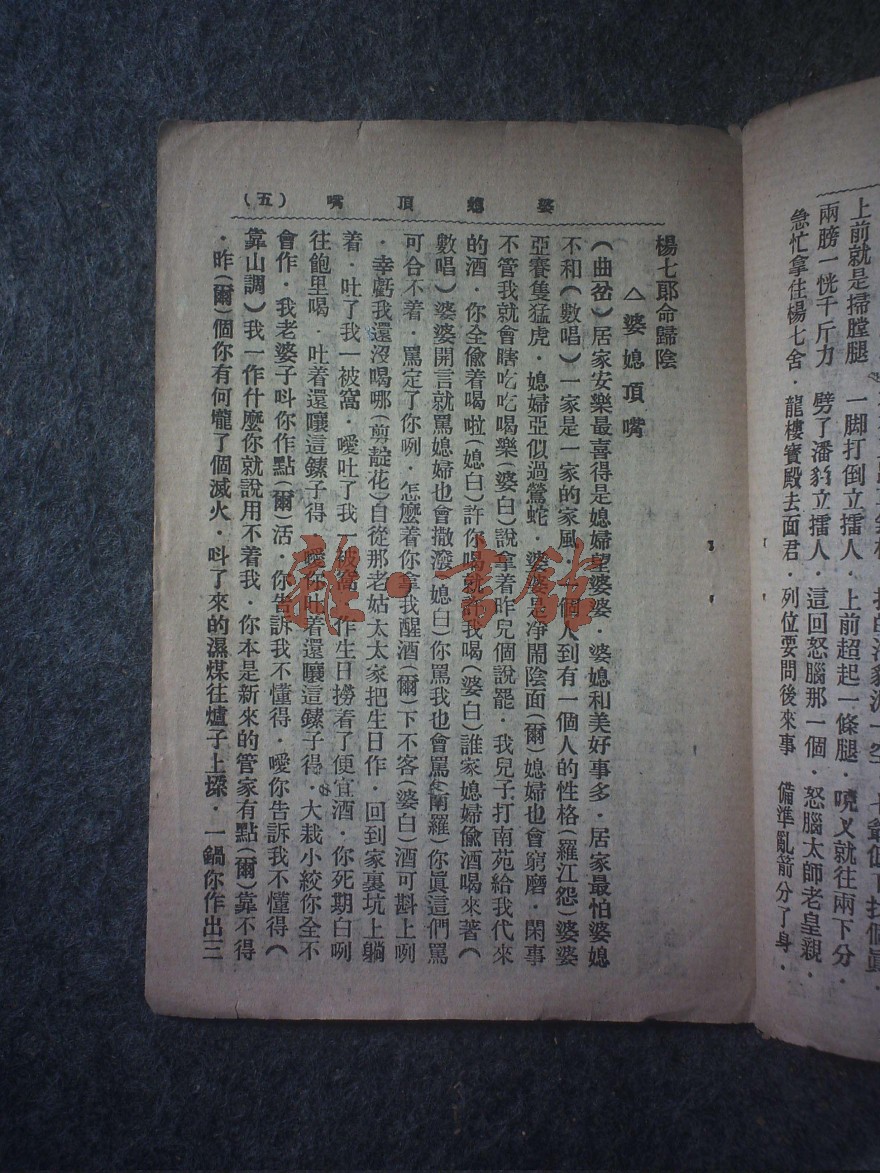 上前就是掃膛腿
兩膀一恍千斤力　一脚打倒立擂人．上前超起一條腿．
劈了潘豹立擂人．這回怒腦那一個．怒腦太師老皇親．
急忙拿住楊七舍．龍樓寶殿去面君．列位要問後來事　備準亂箭分了身．
婆媳頂嘴（五）
楊七郎命歸陰
△婆媳頂嘴
（曲岔）居家安樂最喜得是媳婦望婆婆．婆媳和美好事多．居家最怕婆媳
不和（數唱）一家是一家的家風．一個人到有一個人的性格（羅江怨）婆婆
亞賽隻猛虎．媳婦亞似過鶯蛇．婆婆是净鬧陰面（爾）媳婦也會窮磨．閑事
不管我就會瞎吃吃喝樂（婆白）說拿着昨兒個說罷．我兒子打南苑給我代來
的酒．你全偸着喝啦（媳白）許你喝就許我喝（婆白）誰家媳婦偸酒喝來著（
數唱）婆婆開言就罵媳婦也會撒潑（媳白）你罵我也會罵（南羅）你眞這們罵
可合不着．罵定了你咧．怎麼着你拿我醒酒（爾）下不客（婆白）酒可斟上咧
．幸虧我還沒喝哪（剪靛花）自從那老姑太太家把生日作．回到家裏坑上躺
着．吐了我一被窩．噯吐了我一被窩．作生日撈着了便宜酒．你死期白咧
往飽里喝．吐着還嚷這鎍子得．噯你吐着還嚷這鎍子得．大栽小絞你全不
會作．我老婆子呌你作點（爾）活．你告訴我不懂得．噯你告訴我不懂得（
靠山調）我一作什麼你就說用不着我．你本是新來的管家有點（爾）靠不得
．昨（爾）個你有何壠了個滅火．呌了來的濕煤往爐子上搽．一鍋你作出三
雜·書館